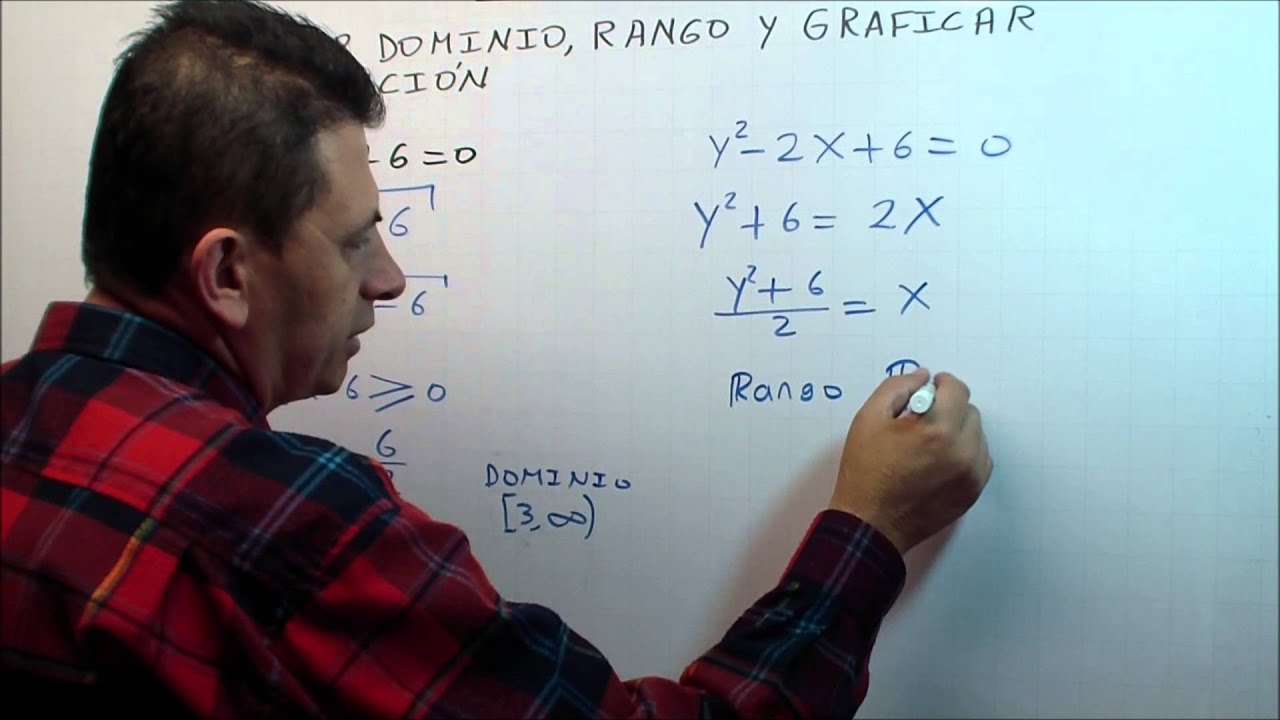 DOMINIO, RANGO Y GRAFICAR
CIÓN
- 6 = 0
6
- 6
6 ⩾ 0
6
DOMINIO
[3, ∞)
y² - 2x + 6 = 0
y² + 6 = 2x
y² + 6 = x
2
Rango